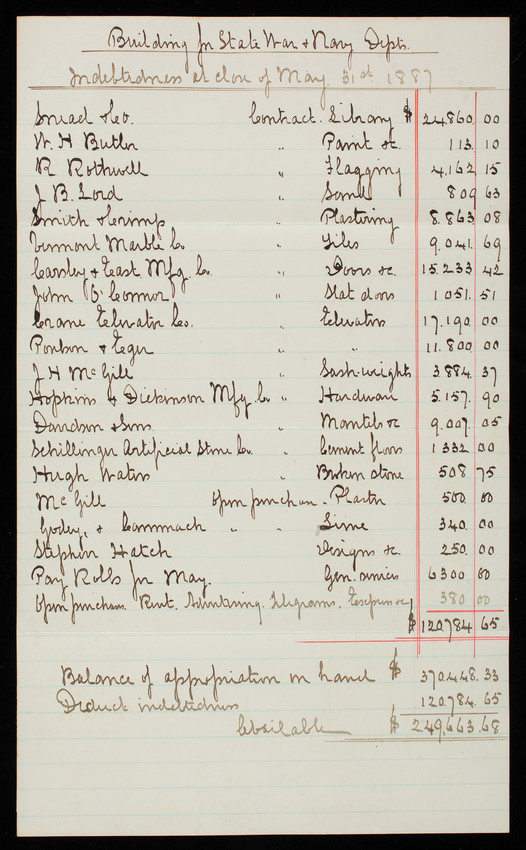 Building for State War & Navy Depts.
Indebtedness at close of May 31st 1887
Snead & Co. Contract. Library $ 24.860 00
W. H Butler " Paint &c. 113. 10
R Rothwell " Flagging 4.162 15
J B. Lord " Sand 809 63
Smith & Crimp " Plastering 8.863 08
Vermont Marble Co. " Tiles 9.041. 69
Carsley & East Mfg. Co. " Doors &c. 15.233 42
John O'Connor " Slat doors 1051. 51
Crane Elevator Co. " Elevators 17.190 00
Poulson & Eger " " 11.800 00
J H McGill " Sash-weights 3884. 37
Hopkins & Dickinson Mfg. Co " Hardware 5.157. 90
Davidson & Sons " Mantels &c 9.007. 05
Schillinger Artificial Stone Co. " Cement floors 1332 00
Hugh Waters " Broken stone 508 75
McGill Open purchase. Plaster 500. 00
Godey, & Cammack " " Lime 340. 00
Stephen Hatch Designs &c. 250. 00
Pay Rolls for May. Gen. services 6300 00
Open purchases. Rent. Advertising. Telegrams. Expenses &c 380 00
$ 120.784. 65
Balance of appropriation on hand $ 370.448.33
Deduct indebtedness 120.784.65
Available $ 249.663.68